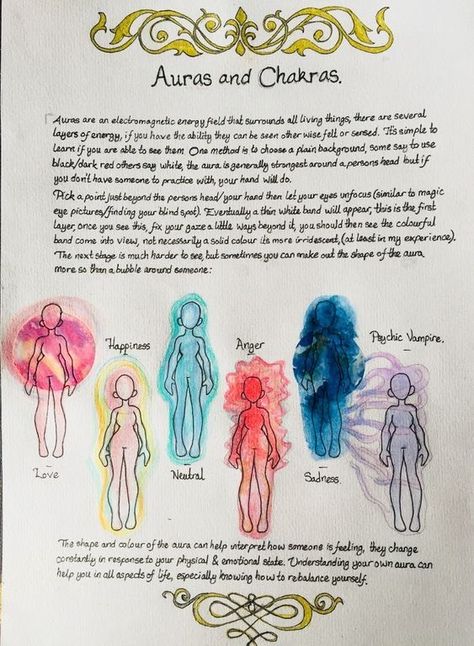 Auras and Chakras.
Auras are an electromagnetic energy field that surrounds all living things, there are several
layers of energy, if you have the ability they can be seen other wise felt or sensed. It's simple to
learn if you are able to see them. One method is to choose a plain background, some say to use
black/dark red others say white, the aura is generally strongest around a persons head but if
you don't have someone to practice with, your hand will do.
Pick a point just beyond the persons head/your hand then let your eyes unfocus (similar to magic
eye pictures/finding your blind spot). Eventually a thin white band will appear, this is the first
layer, once you see this, fix your gaze a little ways beyond it, you should then see the colourful
band come into view, not necessarily a solid colour its more irridescent, (at least in my experience).
The next stage is much harder to see, but sometimes you can make out the shape of the aura
more so than a bubble around someone:
Happiness Anger Psychic Vampire.
Love Neutral Sadness.
The shape and colour of the aura can help interpret how someone is feeling, they change
constantly in response to your physical & emotional state. Understanding your own aura can
help you in all aspects of life, especially knowing how to rebalance yourself.